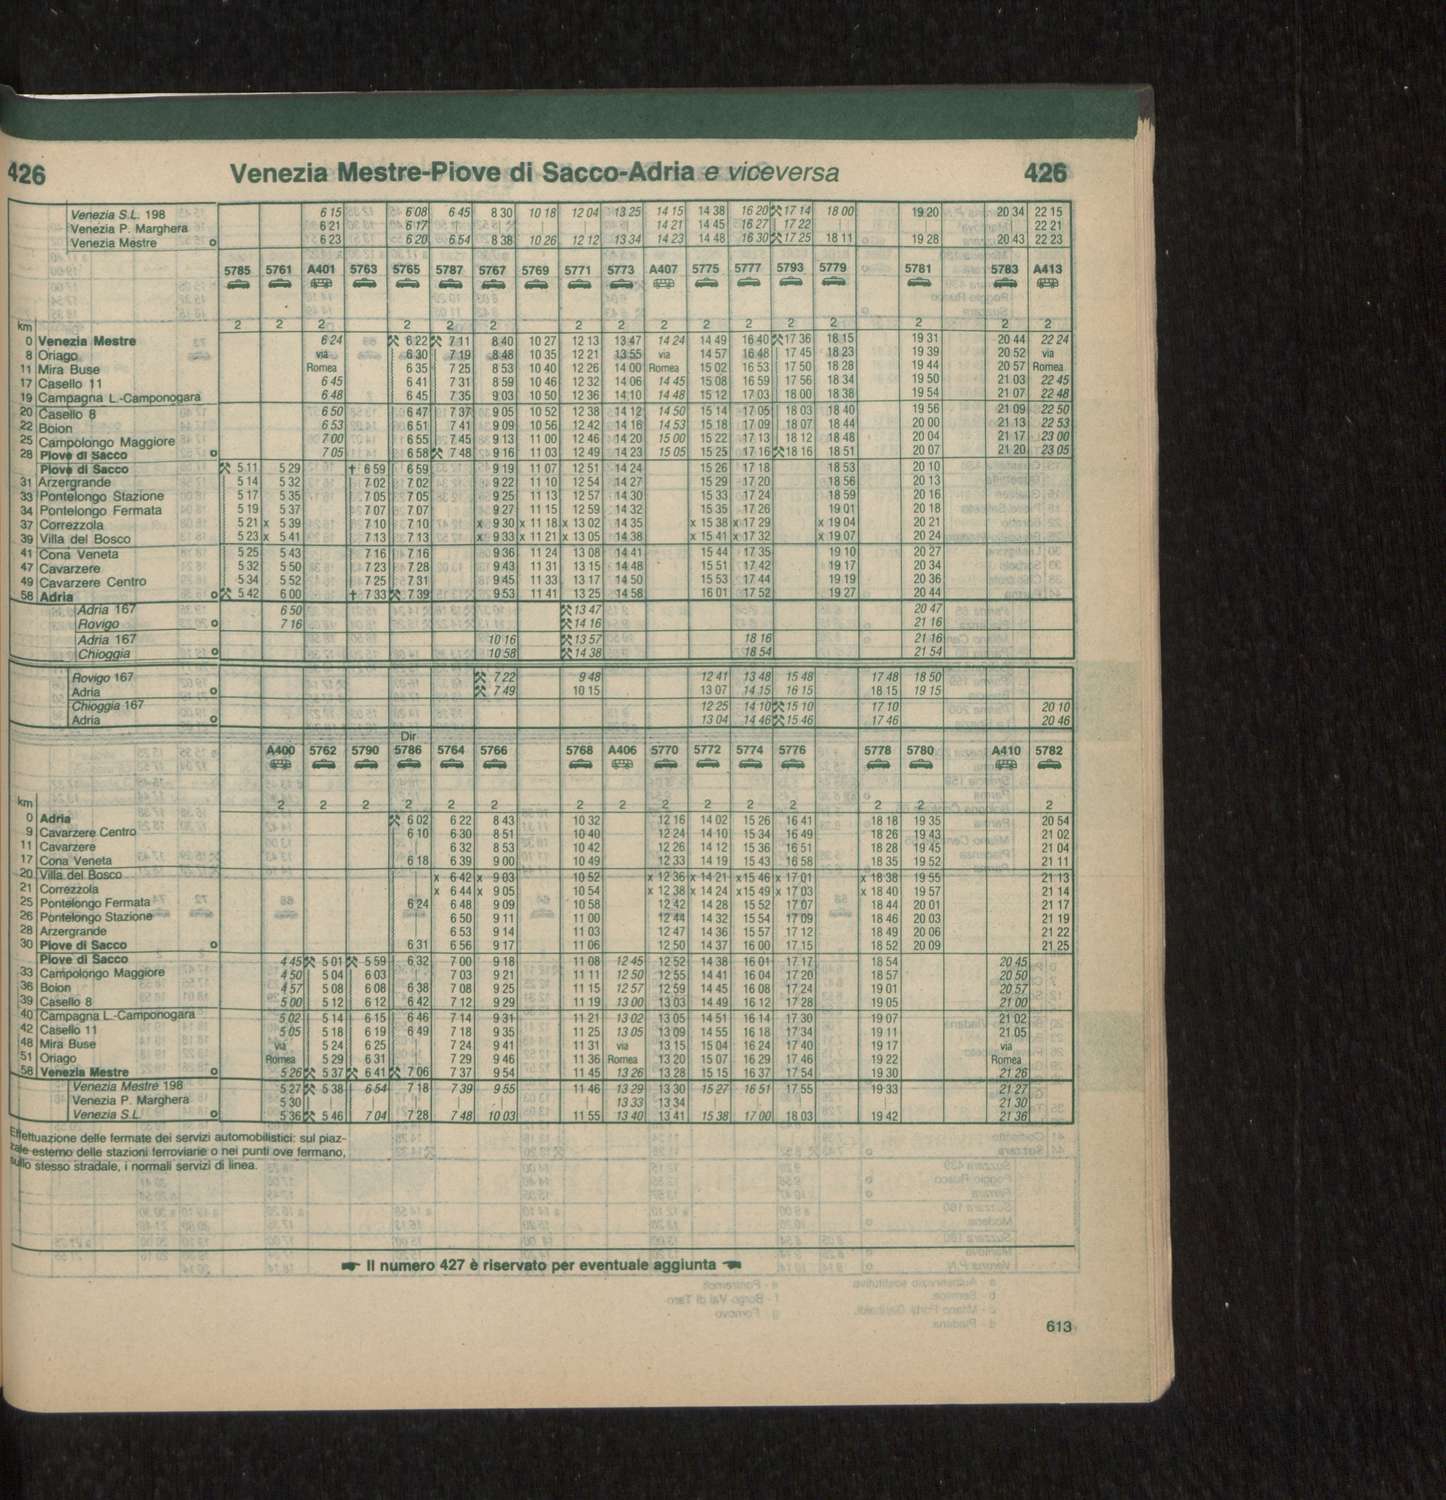 426 Venezia Mestre-Piove di Sacco-Adria e viceversa 426
Venezia S.L. 198 6 15 6 08 6 45 8 30 10 18 12 04 13 25 14 15 14 38 16 20 ⚒ 17 14 18 00 19 20 20 34 22 15
Venezia P. Marghera 6 21 6 17 | | | | | 14 21 14 45 16 27 17 22 | | | 22 21
Venezia Mestre o 6 23 6 20 6 54 8 38 10 26 12 12 13 34 14 23 14 48 16 30 ⚒ 17 25 18 11 19 28 20 43 22 23
5785 5761 A401 5763 5765 5787 5767 5769 5771 5773 A407 5775 5777 5793 5779 5781 5783 A413
km 2 2 2 2 2 2 2 2 2 2 2 2 2 2 2 2
0 Venezia Mestre 6 24 ⚒ 6 22 ⚒ 7 11 8 40 10 27 12 13 13 47 14 24 14 49 16 40 ⚒ 17 36 18 15 19 31 20 44 22 24
8 Oriago via 6 30 7 19 8 48 10 35 12 21 13 55 via 14 57 16 48 17 45 18 23 19 39 20 52 via
11 Mira Buse Romea 6 35 7 25 8 53 10 40 12 26 14 00 Romea 15 02 16 53 17 50 18 28 19 44 20 57 Romea
17 Casello 11 6 45 6 41 7 31 8 59 10 46 12 32 14 06 14 45 15 08 16 59 17 56 18 34 19 50 21 03 22 45
19 Campagna L.-Camponogara 6 48 6 45 7 35 9 03 10 50 12 36 14 10 14 48 15 12 17 03 18 00 18 38 19 54 21 07 22 48
20 Casello 8 6 50 6 47 7 37 9 05 10 52 12 38 14 12 14 50 15 14 17 05 18 03 18 40 19 56 21 09 22 50
22 Boion 6 53 6 51 7 41 9 09 10 56 12 42 14 16 14 53 15 18 17 09 18 07 18 44 20 00 21 13 22 53
25 Campolongo Maggiore 7 00 6 55 7 45 9 13 11 00 12 46 14 20 15 00 15 22 17 13 18 12 18 48 20 04 21 17 23 00
28 Piove di Sacco o 7 05 6 58 ⚒ 7 48 9 16 11 03 12 49 14 23 15 05 15 25 17 16 ⚒ 18 16 18 51 20 07 21 20 23 05
Piove di Sacco ⚒ 5 11 5 29 ✝ 6 59 6 59 9 19 11 07 12 51 14 24 15 26 17 18 18 53 20 10
31 Arzergrande 5 14 5 32 7 02 7 02 9 22 11 10 12 54 14 27 15 29 17 20 18 56 20 13
33 Pontelongo Stazione 5 17 5 35 7 05 7 05 9 25 11 13 12 57 14 30 15 33 17 24 18 59 20 16
34 Pontelongo Fermata 5 19 5 37 7 07 7 07 9 27 11 15 12 59 14 32 15 35 17 26 19 01 20 18
37 Correzzola 5 21 x 5 39 7 10 7 10 x 9 30 x 11 18 x 13 02 14 35 x 15 38 x 17 29 x 19 04 20 21
39 Villa del Bosco 5 23 x 5 41 7 13 7 13 x 9 33 x 11 21 x 13 05 14 38 x 15 41 x 17 32 x 19 07 20 24
41 Cona Veneta 5 25 5 43 7 16 7 16 9 36 11 24 13 08 14 41 15 44 17 35 19 10 20 27
47 Cavarzere 5 32 5 50 7 23 7 28 9 43 11 31 13 15 14 48 15 51 17 42 19 17 20 34
49 Cavarzere Centro 5 34 5 52 7 25 7 31 9 45 11 33 13 17 14 50 15 53 17 44 19 19 20 36
58 Adria o ⚒ 5 42 6 00 ✝ 7 33 ⚒ 7 39 9 53 11 41 13 25 14 58 16 01 17 52 19 27 20 44
Adria 167 6 50 ⚒ 13 47 20 47
Rovigo o 7 16 ⚒ 14 16 21 16
Adria 167 10 16 ⚒ 13 57 18 16 21 16
Chioggia o 10 58 ⚒ 14 38 18 54 21 54
Rovigo 167 ⚒ 7 22 9 48 12 41 13 48 15 48 17 48 18 50
Adria o ⚒ 7 49 10 15 13 07 14 15 16 15 18 15 19 15
Chioggia 167 12 25 14 10 ⚒ 15 10 17 10 20 10
Adria o 13 04 14 46 ⚒ 15 46 17 46 20 46
Dir
A400 5762 5790 5786 5764 5766 5768 A406 5770 5772 5774 5776 5778 5780 A410 5782
km 2 2 2 2 2 2 2 2 2 2 2 2 2 2 2
0 Adria ⚒ 6 02 6 22 8 43 10 32 12 16 14 02 15 26 16 41 18 18 19 35 20 54
9 Cavarzere Centro 6 10 6 30 8 51 10 40 12 24 14 10 15 34 16 49 18 26 19 43 21 02
11 Cavarzere | 6 32 8 53 10 42 12 26 14 12 15 36 16 51 18 28 19 45 21 04
17 Cona Veneta 6 18 6 39 9 00 10 49 12 33 14 19 15 43 16 58 18 35 19 52 21 11
20 Villa del Bosco | x 6 42 x 9 03 10 52 x 12 36 x 14 21 x 15 46 x 17 01 x 18 38 19 55 21 13
21 Correzzola | x 6 44 x 9 05 10 54 x 12 38 x 14 24 x 15 49 x 17 03 x 18 40 19 57 21 14
25 Pontelongo Fermata 6 24 6 48 9 09 10 58 12 42 14 28 15 52 17 07 18 44 20 01 21 17
26 Pontelongo Stazione | 6 50 9 11 11 00 12 44 14 32 15 54 17 09 18 46 20 03 21 19
28 Arzergrande | 6 53 9 14 11 03 12 47 14 36 15 57 17 12 18 49 20 06 21 22
30 Piove di Sacco o 6 31 6 56 9 17 11 06 12 50 14 37 16 00 17 15 18 52 20 09 21 25
Piove di Sacco 4 45 ⚒ 5 01 ⚒ 5 59 6 32 7 00 9 18 11 08 12 45 12 52 14 38 16 01 17 17 18 54 20 45
33 Campolongo Maggiore 4 50 5 04 6 03 | 7 03 9 21 11 11 12 50 12 55 14 41 16 04 17 20 18 57 20 50
36 Boion 4 57 5 08 6 08 6 38 7 08 9 25 11 15 12 57 12 59 14 45 16 08 17 24 19 01 20 57
39 Casello 8 5 00 5 12 6 12 6 42 7 12 9 29 11 19 13 00 13 03 14 49 16 12 17 28 19 05 21 00
40 Campagna L.-Camponogara 5 02 5 14 6 15 6 46 7 14 9 31 11 21 13 02 13 05 14 51 16 14 17 30 19 07 21 02
42 Casello 11 5 05 5 18 6 19 6 49 7 18 9 35 11 25 13 05 13 09 14 55 16 18 17 34 19 11 21 05
48 Mira Buse via 5 24 6 25 | 7 24 9 41 11 31 via 13 15 15 04 16 24 17 40 19 17 via
51 Oriago Romea 5 29 6 31 | 7 29 9 46 11 36 Romea 13 20 15 07 16 29 17 46 19 22 Romea
58 Venezia Mestre o 5 26 ⚒ 5 37 ⚒ 6 41 ⚒ 7 06 7 37 9 54 11 45 13 26 13 28 15 15 16 37 17 54 19 30 21 26
Venezia Mestre 198 5 27 ⚒ 5 38 6 54 7 18 7 39 9 55 11 46 13 29 13 30 15 27 16 51 17 55 19 33 21 27
Venezia P. Marghera 5 30 | | | | | | 13 33 13 34 | | | | 21 30
Venezia S.L. o 5 36 ⚒ 5 46 7 04 7 28 7 48 10 03 11 55 13 40 13 41 15 38 17 00 18 03 19 42 21 36
Effettuazione delle fermate dei servizi automobilistici: sul piaz-
zale esterno delle stazioni ferroviarie o nei punti ove fermano,
sullo stesso stradale, i normali servizi di linea.
Il numero 427 è riservato per eventuale aggiunta
613